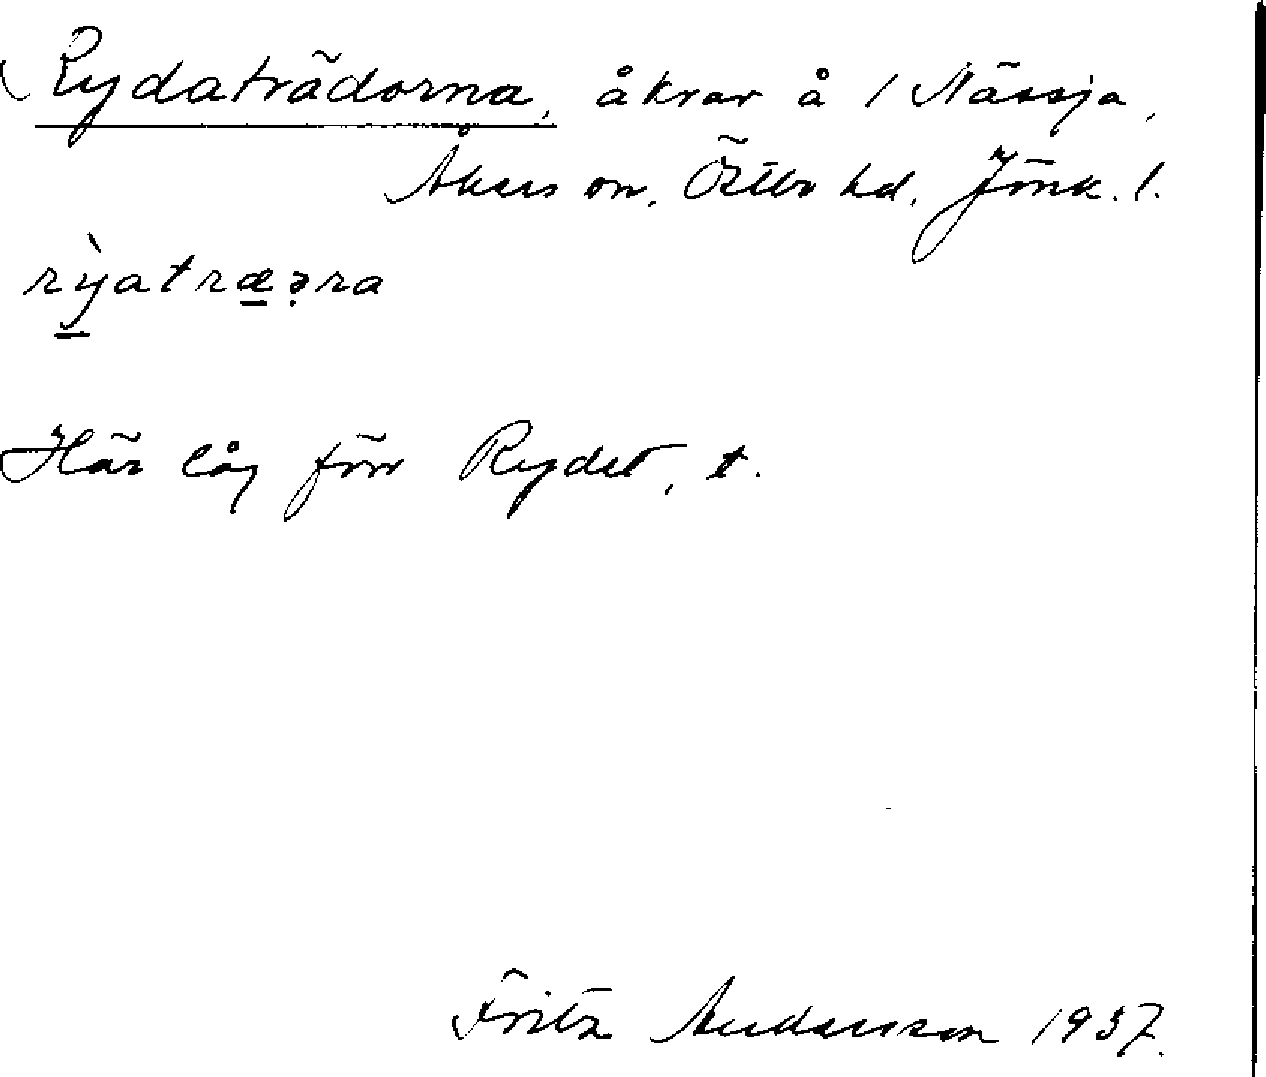 Rydaträdorna, åkrar å 1 Nässja,
Åkers sn, Östbo hd, Jönk. l.
rỳatræɂra
Här låg förr Rydet, t.
Fritz Andersson 1937.